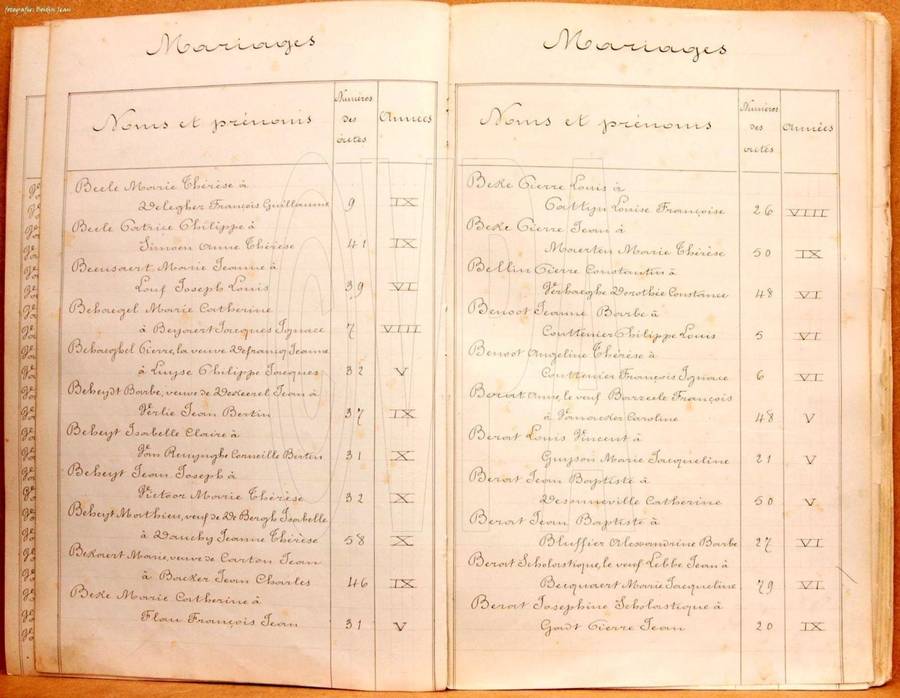 fotografie: Beidin Jean
Mariages
Noms et prénoms
Numéros des actes
Années
Beele Marie Thérèse à
Delegher François Guillaume 9 IX
Beele Patrice Philippe à
Simoen Anne Thérèse 41 IX
Beensaert Marie Jeanne à
Louf Joseph Louis 39 VI
Behaegel Marie Catherine
à Beyaert Jacques Ignace 7 VIII
Behaeghel Pierre, la veuve Defrancq Jeanne
à Luyse Philippe Jacques 32 V
Beheydt Barbe, veuve de Dekeerel Jean à
Verlie Jean Bertin 37 IX
Beheyt Isabelle Claire à
Van Renynghe Corneille Bertin 31 X
Beheyt Jean Joseph à
Victoor Marie Thérèse 32 X
Beheyt Mathieu, veuf de De Bergh Isabelle
à Dauchy Jeanne Thérèse 58 X
Bekaert Marie, veuve de Carton Jean
à Backer Jean Charles 46 IX
Beke Marie Catherine à
Flau François Jean 31 V
Mariages
Noms et prénoms
Numéros des actes
Années
Beke Pierre Louis à
Cattyn Louise Françoise 26 VIII
Beke Pierre Jean à
Maerten Marie Thérèse 50 IX
Bellin Pierre Constantin à
Verhaeghe Dorothée Constance 48 VI
Benoot Jeanne Barbe à
Couttenier Philippe Louis 5 VI
Benoot Angeline Thérèse à
Couttenier François Ignace 6 VI
Berat Anne, le veuf Barzeele François
à Vanacker Caroline 48 V
Berat Louis Vincent à
Guyson Marie Jacqueline 21 V
Berat Jean Baptiste à
Desonneville Catherine 50 V
Berat Jean Baptiste à
Bluffier Alexandrine Barbe 27 VI
Berat Scholastique, le veuf Lebbe Jean à
Bequaert Marie Jacqueline 79 VI
Berat Josephine Scholastique à
Gadt Pierre Jean 20 IX